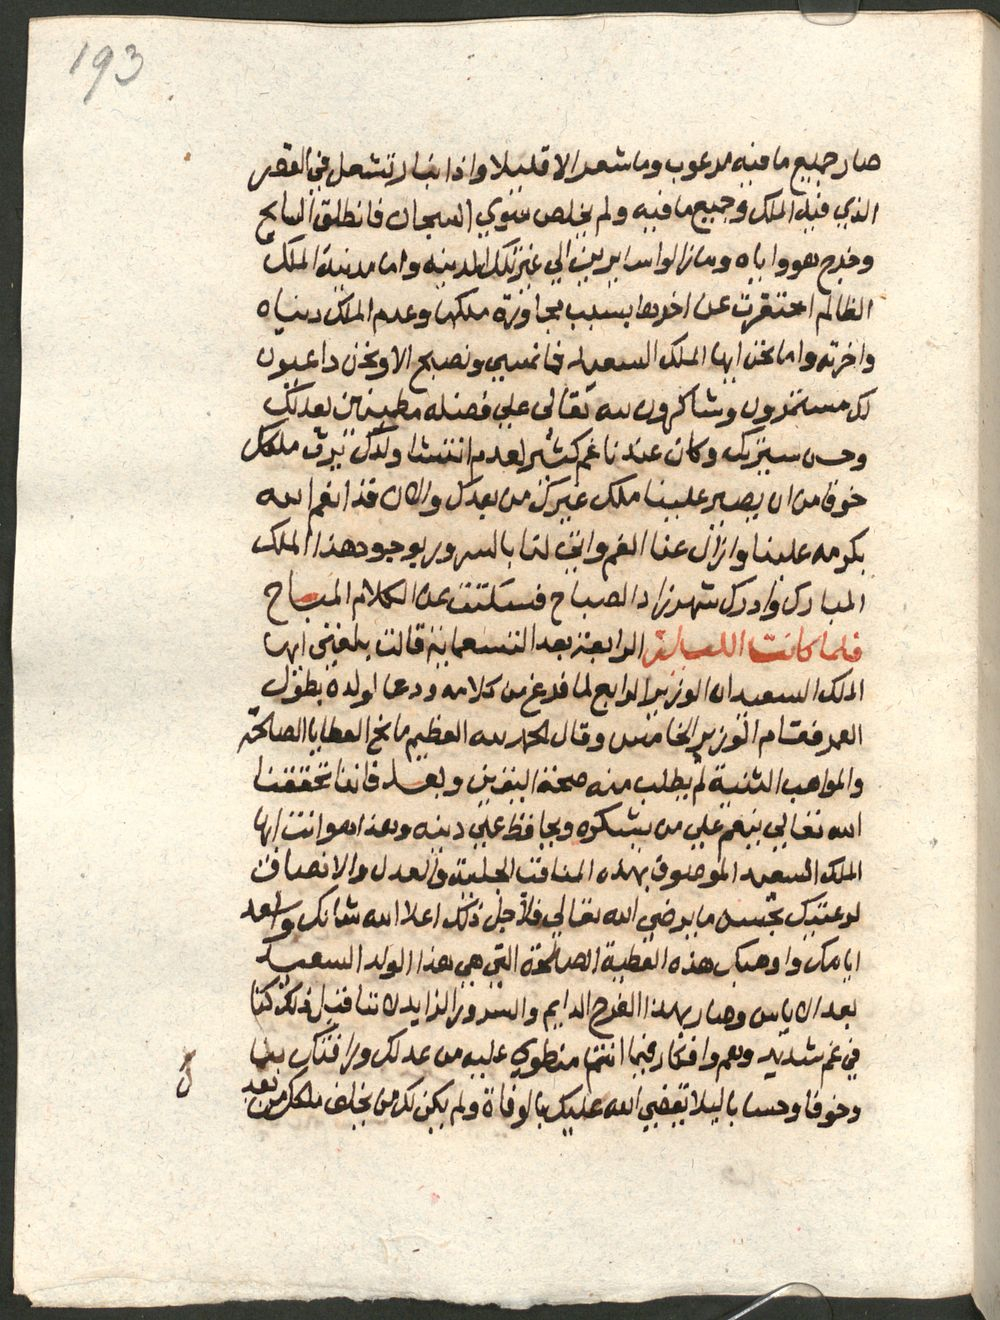 193
صار جميع ما فيه مرعوب وما شعر الا قليلا واذا بنار تشعل في القصر
الذي فيه الملك وجميع ما فيه ولم يخلص سوي السجان فانطلق السايح
وخرج هو واياه وما زالوا سايرين الي غير تلك المدينه واما مدينة الملك
الظالم احتقرت عن اخرها بسبب مجاوزة ملكها وعدم الملك دنياه
واخرته واما نحن ايها الملك السعيد فما نمسي ونصبح الا ونحن داعيون
لك مستمرون وشاكرون لله تعالى علي فضله مطمينين بعدلك
وحسن سيرتك وكان عندنا غم كثير لعدم انتشا ولدك يرث ملكك
خوفا من ان يصير علينا ملك غيرك من بعدك والان قد انعم الله
بكرمه علينا وازال عنا الغم واتي لنا بالسرور بوجود هذا الملك
المبارك وادرك شهرزاد الصباح فسكتت عن الكلام المباح
فلما كانت الليلة الرابعة بعد التسعماية قالت بلغني ايها
الملك السعيد ان الوزير الرابع لما فرغ من كلامه ودعا لولده بطول
العمر فقام الوزير الخامس وقال الحمد لله العظيم مانح العطايا الصالحة
والمواهب السنية لم يطلب منه صحة اليقين وبعد فاننا تحققنا
الله تعالي ينعم علي من يشكره ويحافظ علي دينه وهذا هو انت ايها
الملك السعيد الموصوف بهذه المناقب الجليلة والعدل والانصاف
لرعيتك بحسب ما يرضي الله تعالي فلاجل ذلك اعلا الله شانك واسعد
ايامك واوهبك هذه العطية الصالحة التي هي هذا الولد السعيد
بعد الاياس وصار بهذا الفرح الدايم والسرور الزايد لاننا قبل ذلك كنا
في غم شديد وهم وافكار فيما انتم منطوي عليه من عدلك ورافتك بنا
وخوفا وحسابا ليلا يقضي الله عليك بالوفاة ولم يكن لك من يخلف ملكك من بعد
ك